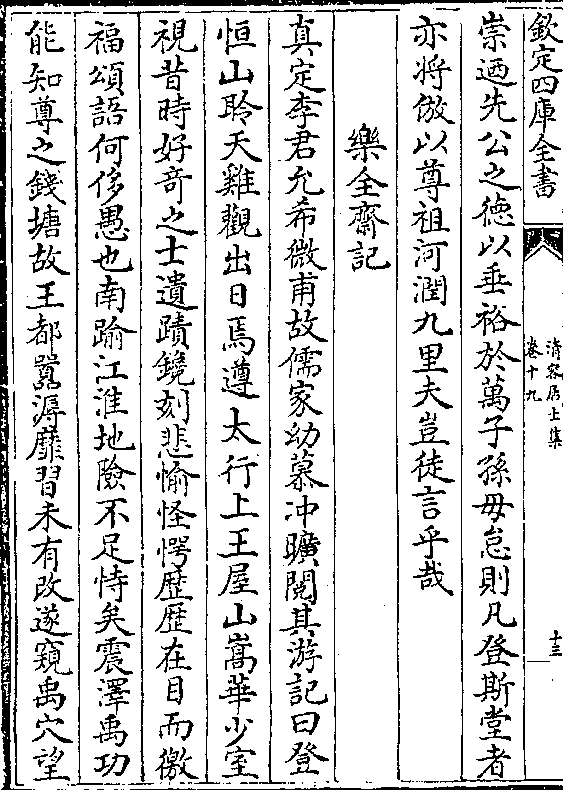 欽定四庫全書
清容居士集
卷十九
十三
崇迺先公之德以垂裕於萬子孫毋怠則凡登斯堂者
亦將倣以尊祖河潤九里夫豈徒言乎哉
樂全齋記
真定李君允希微甫故儒家幼慕冲曠閱其游記曰登
恒山聆天雞觀出日焉遵太行上王屋山嵩華少室
視昔時好竒之士遺蹟鐫刻悲愉怪愕歴歴在目而徼
福頌語何侈愚也南踰江淮地險不足恃矣震澤禹功
能知尊之錢塘故王都嚚溽靡習未有改遂窺禹穴望